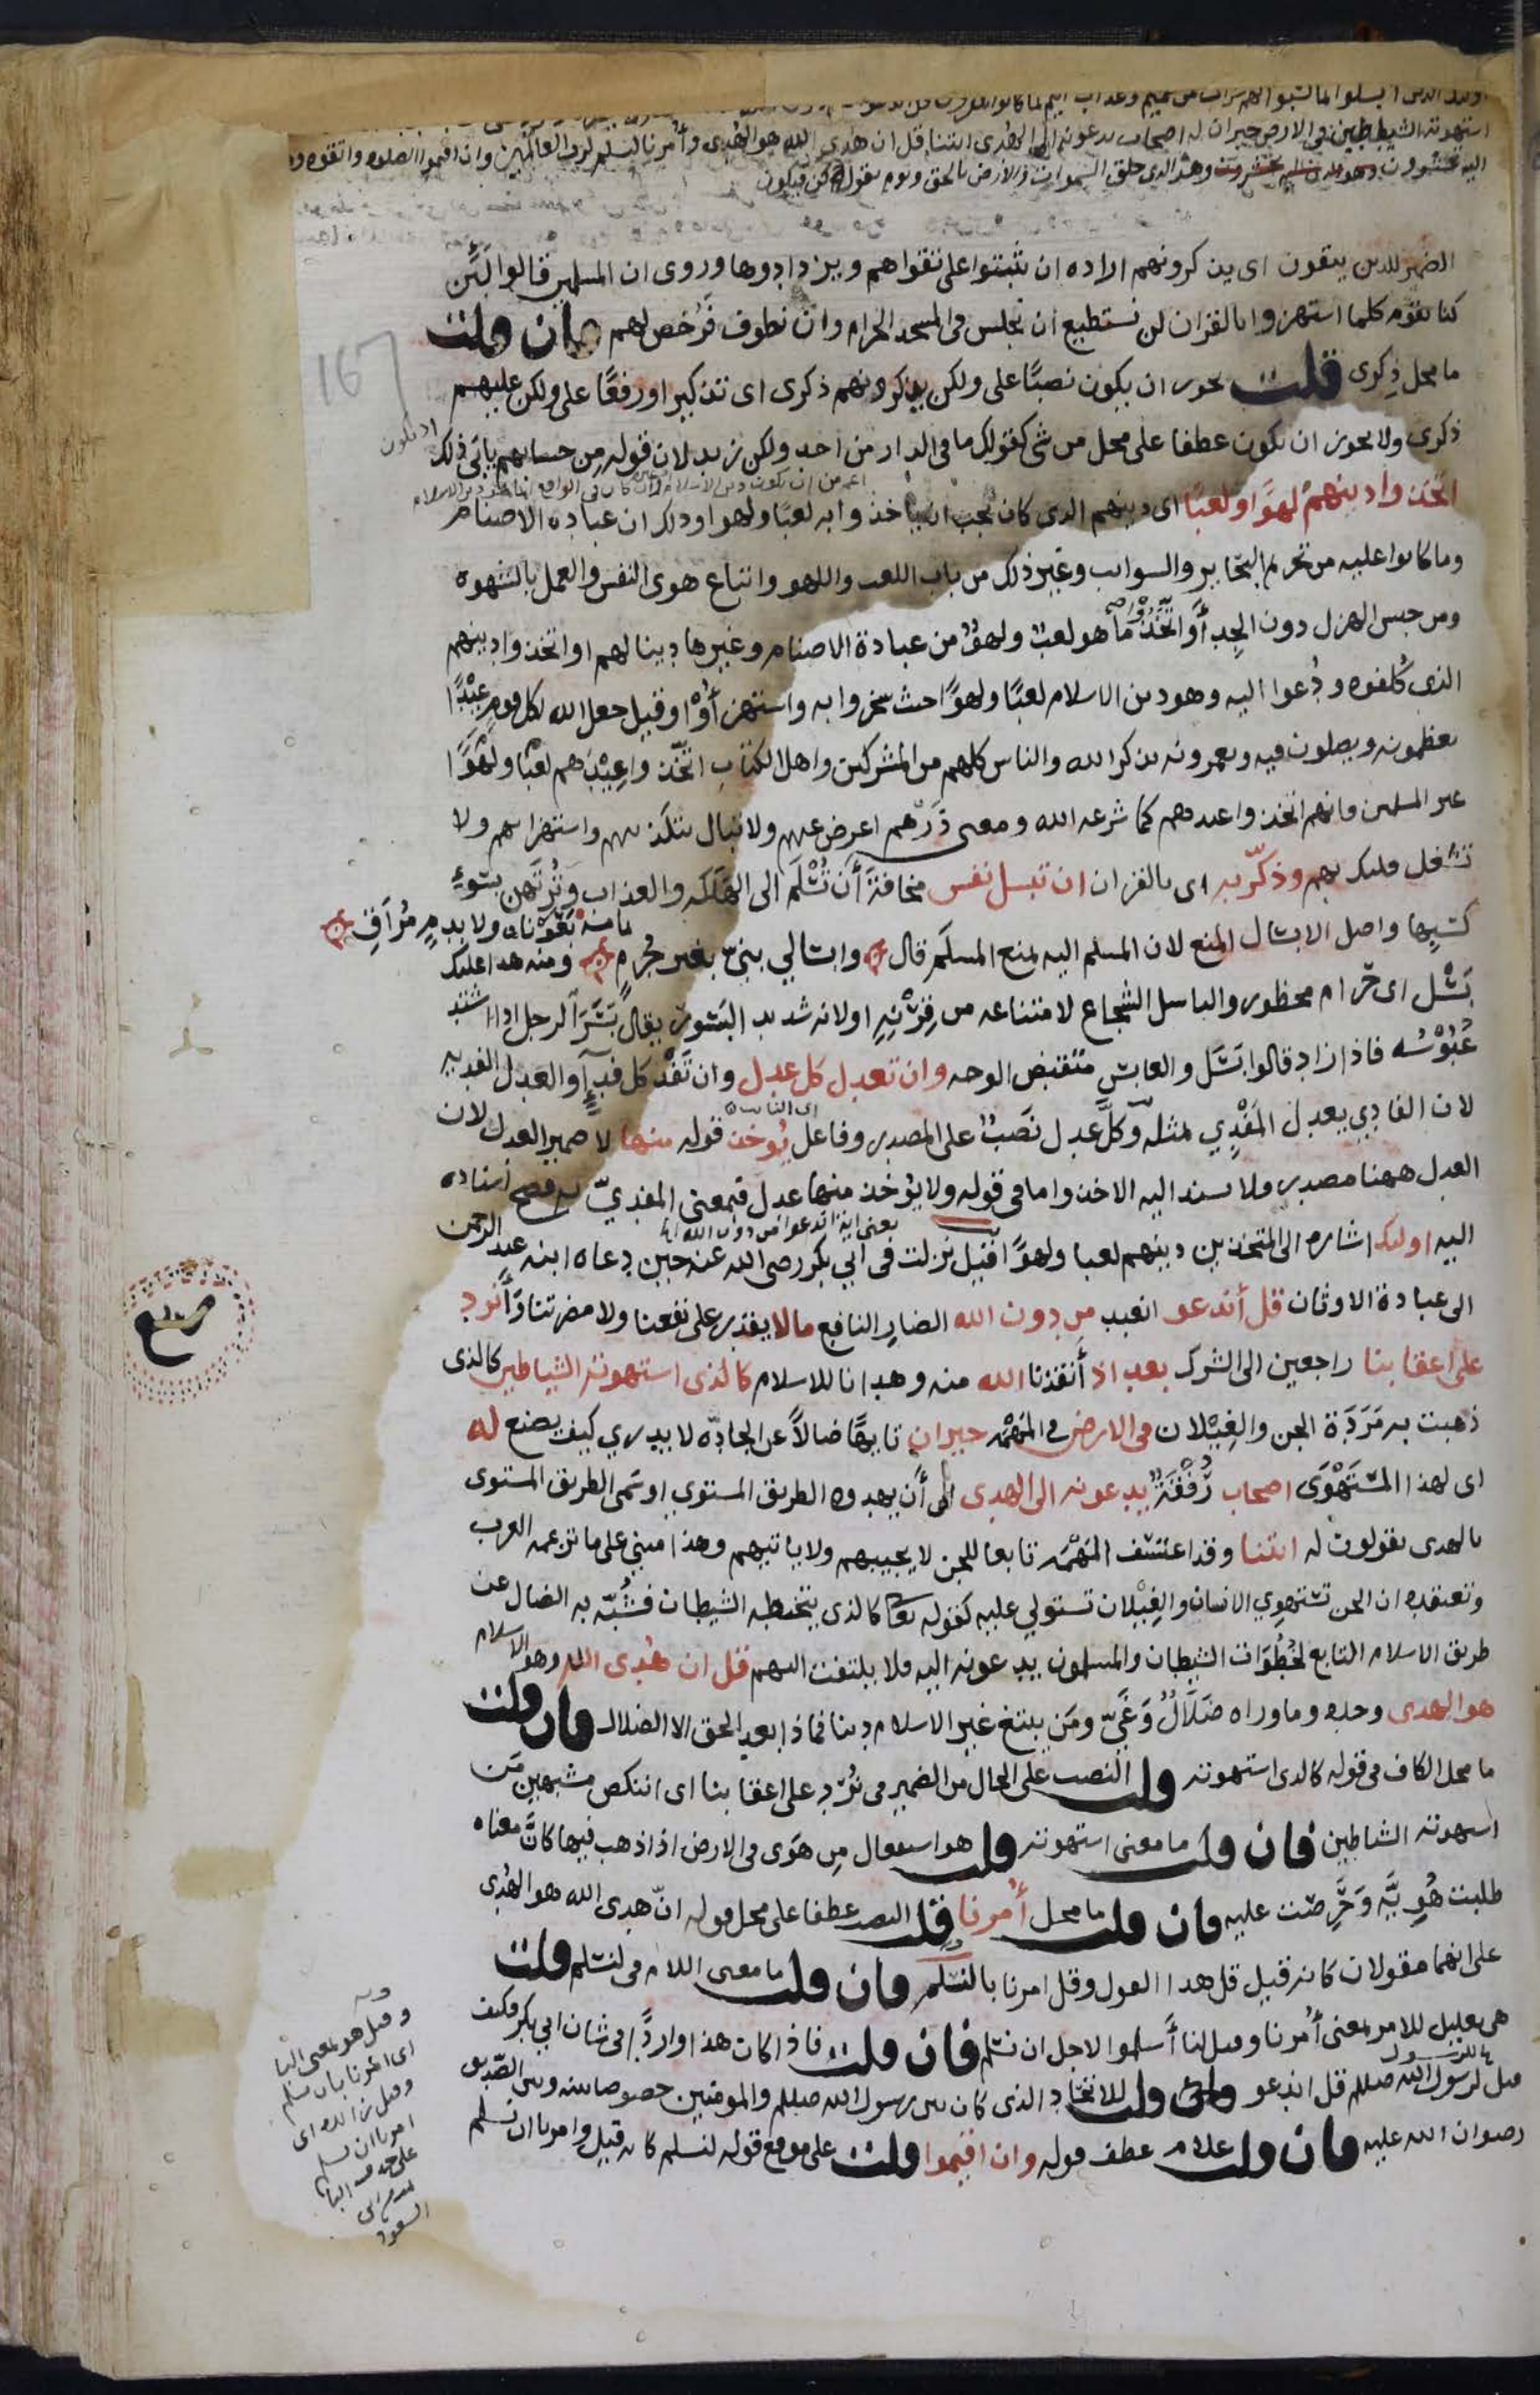 اولئك الذين ابسلوا بما كسبوا لهم شراب من حميم وعذاب اليم بما كانوا
استهوته الشيطين في الارض حيران له اصحاب يدعونه الى الهدى ائتنا قل ان هدى الله هو الهدى وأمرنا لنسلم لرب العالمين وان اقيموا الصلوة واتقوه و
اليه تحشرون وهو الذي خلق السموات والارض بالحق ويوم يقول كن فيكون
الضمير للذين يتقون اى يذكرونهم ارادة ان يثبتوا على تقواهم ويزدادوها وروى ان المسلمين قالوا لئن
كنا نقوم كلما استهزوا بالقران لن نستطيع ان نجلس فى المسجد الحرام وان نطوف فرخص لهم فان قلت
ما محل ذكرى قلت يجوز ان يكون نصبًا على ولكن يذكرونهم ذكرى اى تذكيرا ورفعًا على ولكن عليهم
ذكرى ولا يجوز ان يكون عطفا على محل من شى كقولك ما فى الدار من احد ولكن زيد لان قوله من حسابهم يابى ذلك
اتخذوا دينهم لهوًا ولعبًا اى دينهم الذى كان يجب ان ياخذوا به لعبًا ولهوا وذلك ان عباده الاصنام
وما كانوا عليه من تحريم البحاير والسوايب وغير ذلك من باب اللعب واللهو واتباع هوى النفس والعمل بالشهوة
ومن جنس الهزل دون الجد أو اتخذوا ما هو لعبٌ ولهوٌ من عبادة الاصنام وغيرها دينا لهم او اتخذوا دينهم
الذى كُلفوه ودُعوا اليه وهو دين الاسلام لعبًا ولهوًا حيث سخروا به واستهزأوا وقيل جعل الله لكل قوم عيدًا
يعظمونه ويصلون فيه ويعمرونه بذكر الله والناس كلهم من المشركين واهل الكتاب اتخذوا عيدهم لعبًا ولهوًا
غير المسلمين فانهم اتخذوا عيدهم كما شرعه الله ومعنى ذرهم اعرض عنهم ولا تبال بتكذيبهم واستهزايهم ولا
تشغل قلبك بهم وذكّر به اى بالقران ان تبسل نفس مخافة أن تُسْلَم الى الهلكه والعذاب وتُرتهن بسوءِ
كسبها واصل الابسال المنع لان المسلم اليه يمنع المسلَم قال وابسالي بنيّ بغير جُرم بعوناه ولا بدم مُراقٍ ومنه هذا عليك
بَسْل اى حرام محظور والباسل الشجاع لامتناعه من قِرْنِه او لانه شديد البسور يقال بَسَرَ الرجل اذا اشتد
عُبُوْسُه فاذا زاد قالوا بَسَل والعابس متقبض الوجه وان تعدل كل عدل وان تَفْد كل فداءٍ والعدل الفديه
لان الفادي يعدل المَفْدِي بمثله وكلَّ عدل نَصَبٌ على المصدر وفاعل يُوخذ قوله منها لا ضمير العدل لان
العدل ههنا مصدر فلا يسند اليه الاخذ واما فى قوله ولا يؤخذ منها عدل فبمعنى المفديّ به فصح اسناده
اليه اولئك اشاره الى المتخذين دينهم لعبا ولهوًا قيل نزلت فى ابي بكر رضى الله عنه حين دعاه ابنه عبد الرحمن
الى عبادة الاوثان قل أندعو انعبد من دون الله الضار النافع ما لا يقدر على نفعنا ولا مضرتنا ونُرد
على اعقابنا راجعين الى الشرك بعد اذ أنقذنا الله منه وهدانا للاسلام كالذى استهوته الشياطين كالذى
ذهبت به مَرَدَة الجن والغِيْلان فى الارض في المَهْمَه حيران تايهًا ضالاً عن الجادّه لا يدري كيف يصنع له
اى لهذا المستَهْوَى اصحاب رُفْقَةٌ يدعونه الى الهدى الى أن يهدوه الطريق المستوي او سمى الطريق المستوى
بالهدى يقولون له ائتنا وقد اعتسف المَهْمَه تابعا للجن لا يجيبهم ولا ياتيهم وهذا مبني على ما تزعمه العرب
وتعتقده ان الجن تستهوِي الانسان والغِيْلان تستولي عليه كقوله تعا كالذى يتخبطه الشيطان فشُبّه به الضال عن
طريق الاسلام التابع لخُطُوَات الشيطان والمسلمون يدعونه اليه فلا يلتفت اليهم قل ان هُدى الله وهو الاسلام
هو الهدى وحده وما وراه ضَلَالٌ وَغَيّ ومَن يبتغ غير الاسلام دينا فماذا بعد الحق الا الضلال فان قلت
ما محل الكاف فى قوله كالذى استهوته قلت النصب على الحال من الضمير فى نُرّد على اعقابنا اى اننكص مشبهين مَن
استهوته الشياطين فان قلت ما معنى استهوته قلت هو استفعال من هَوَى فى الارض اذا ذهب فيها كانّ معناه
طلبت هُوِيَّه وَحَرِصت عليه فان قلت ما محل أمرنا قلت النصب عطفا على محل قوله انّ هدى الله هو الهُدى
على انهما مقولان كانه قيل قل هذا القول وقل امرنا بالنسلم فان قلت ما معنى اللام فى لنسلم قلت
هى تعليل للامر بمعنى أُمرنا وقيل لنا أسلموا لاجل ان نسلم فان قلت فاذا كان هذا واردًا فى شان ابي بكر فكيف
قيل لرسول الله صلعم قل اندعو قلت للاتحاد الذى كان بين رسول الله صلعم والمومنين خصوصا بينه وبين الصّديق
رضوان الله عليه فان قلت علام عطف قوله وان اقيموا قلت على موضع قوله لنسلم كانه قيل وامرنا ان نسلم
وقيل هو بمعنى البا
اى امرنا بان نسلم
وقيل زائده اى
امرنا ان نسلم
على حذف البا
السعود
167